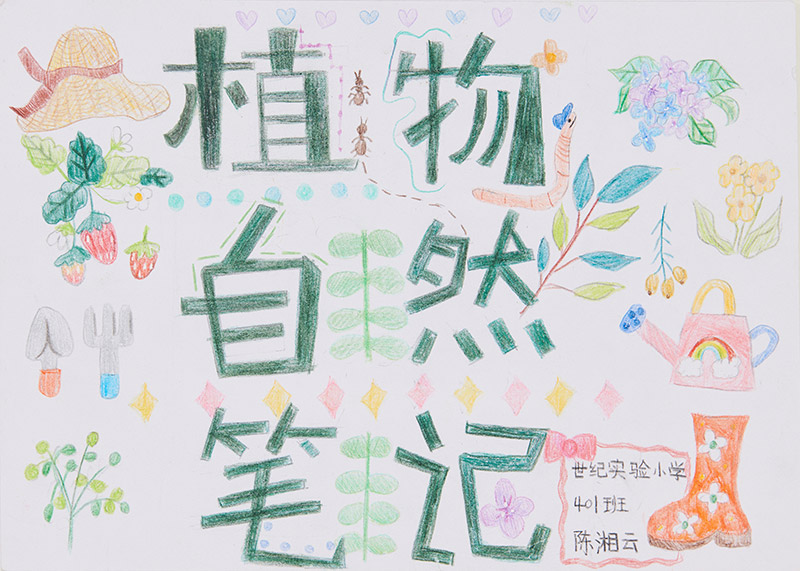 植物
自然
笔记
世纪实验小学
401班
陈湘云